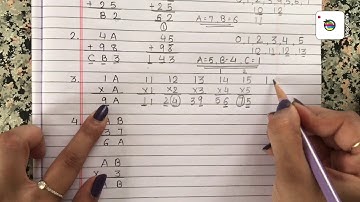 + 25 + 25
B 2 52 A=7, B=6
10 18
2. 4A 45 0, 1, 2, 3, 4, 5
+ 98 + 98 10 11 12 13
C B 3 1 4 3 A=5, B=4, C=1
3. 1A 11 12 13 14 15 1
x A x1 x2 x3 x4 x5
9 A 11 24 39 56 75
4. A B
3 7
6 A
A B
x 3
A B